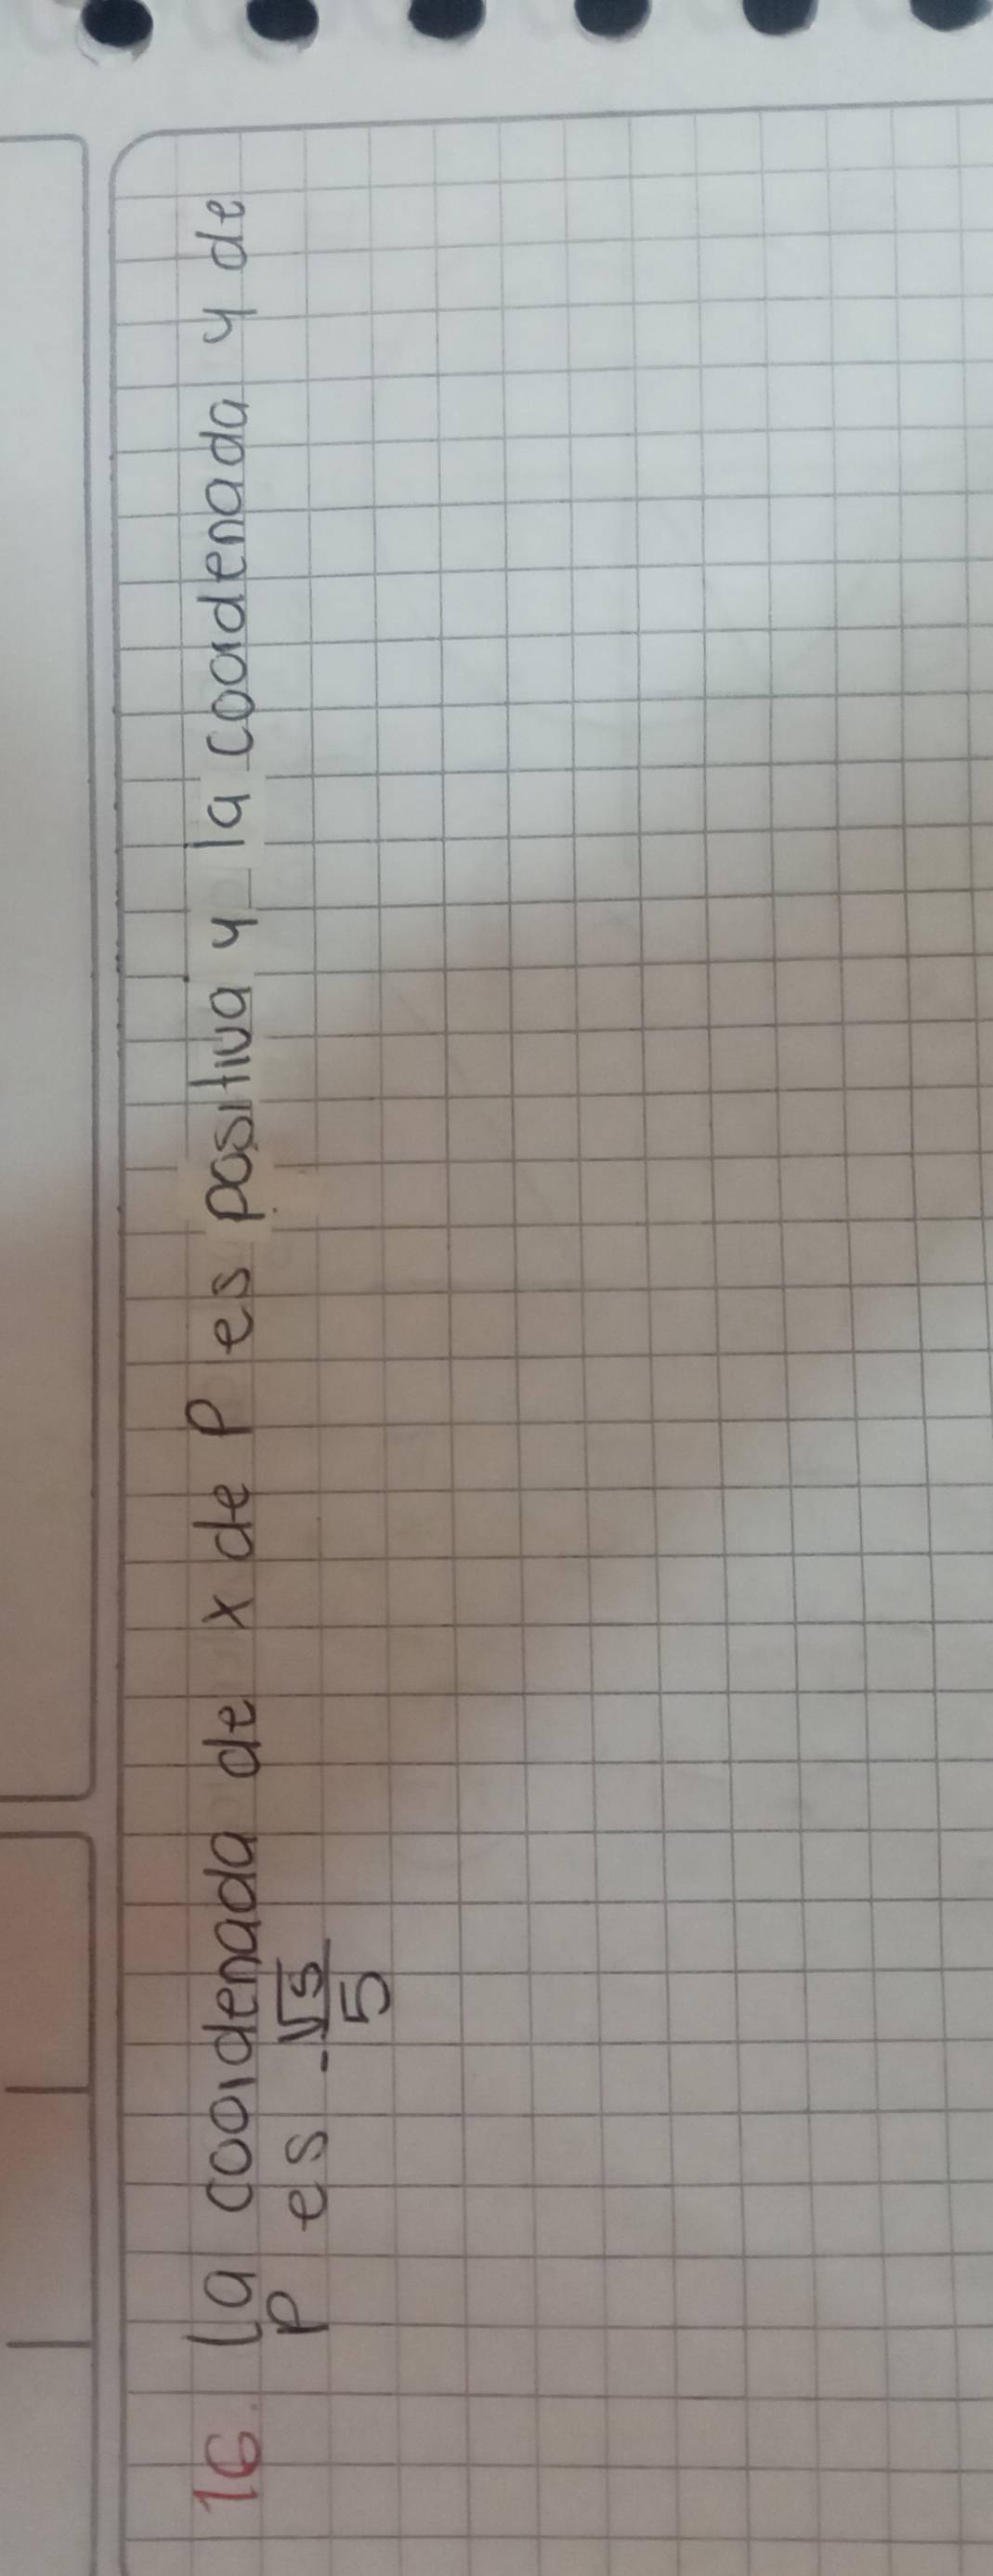 16. La coordenada de x de P es positiva y la coordenada y de
P es -√5/5